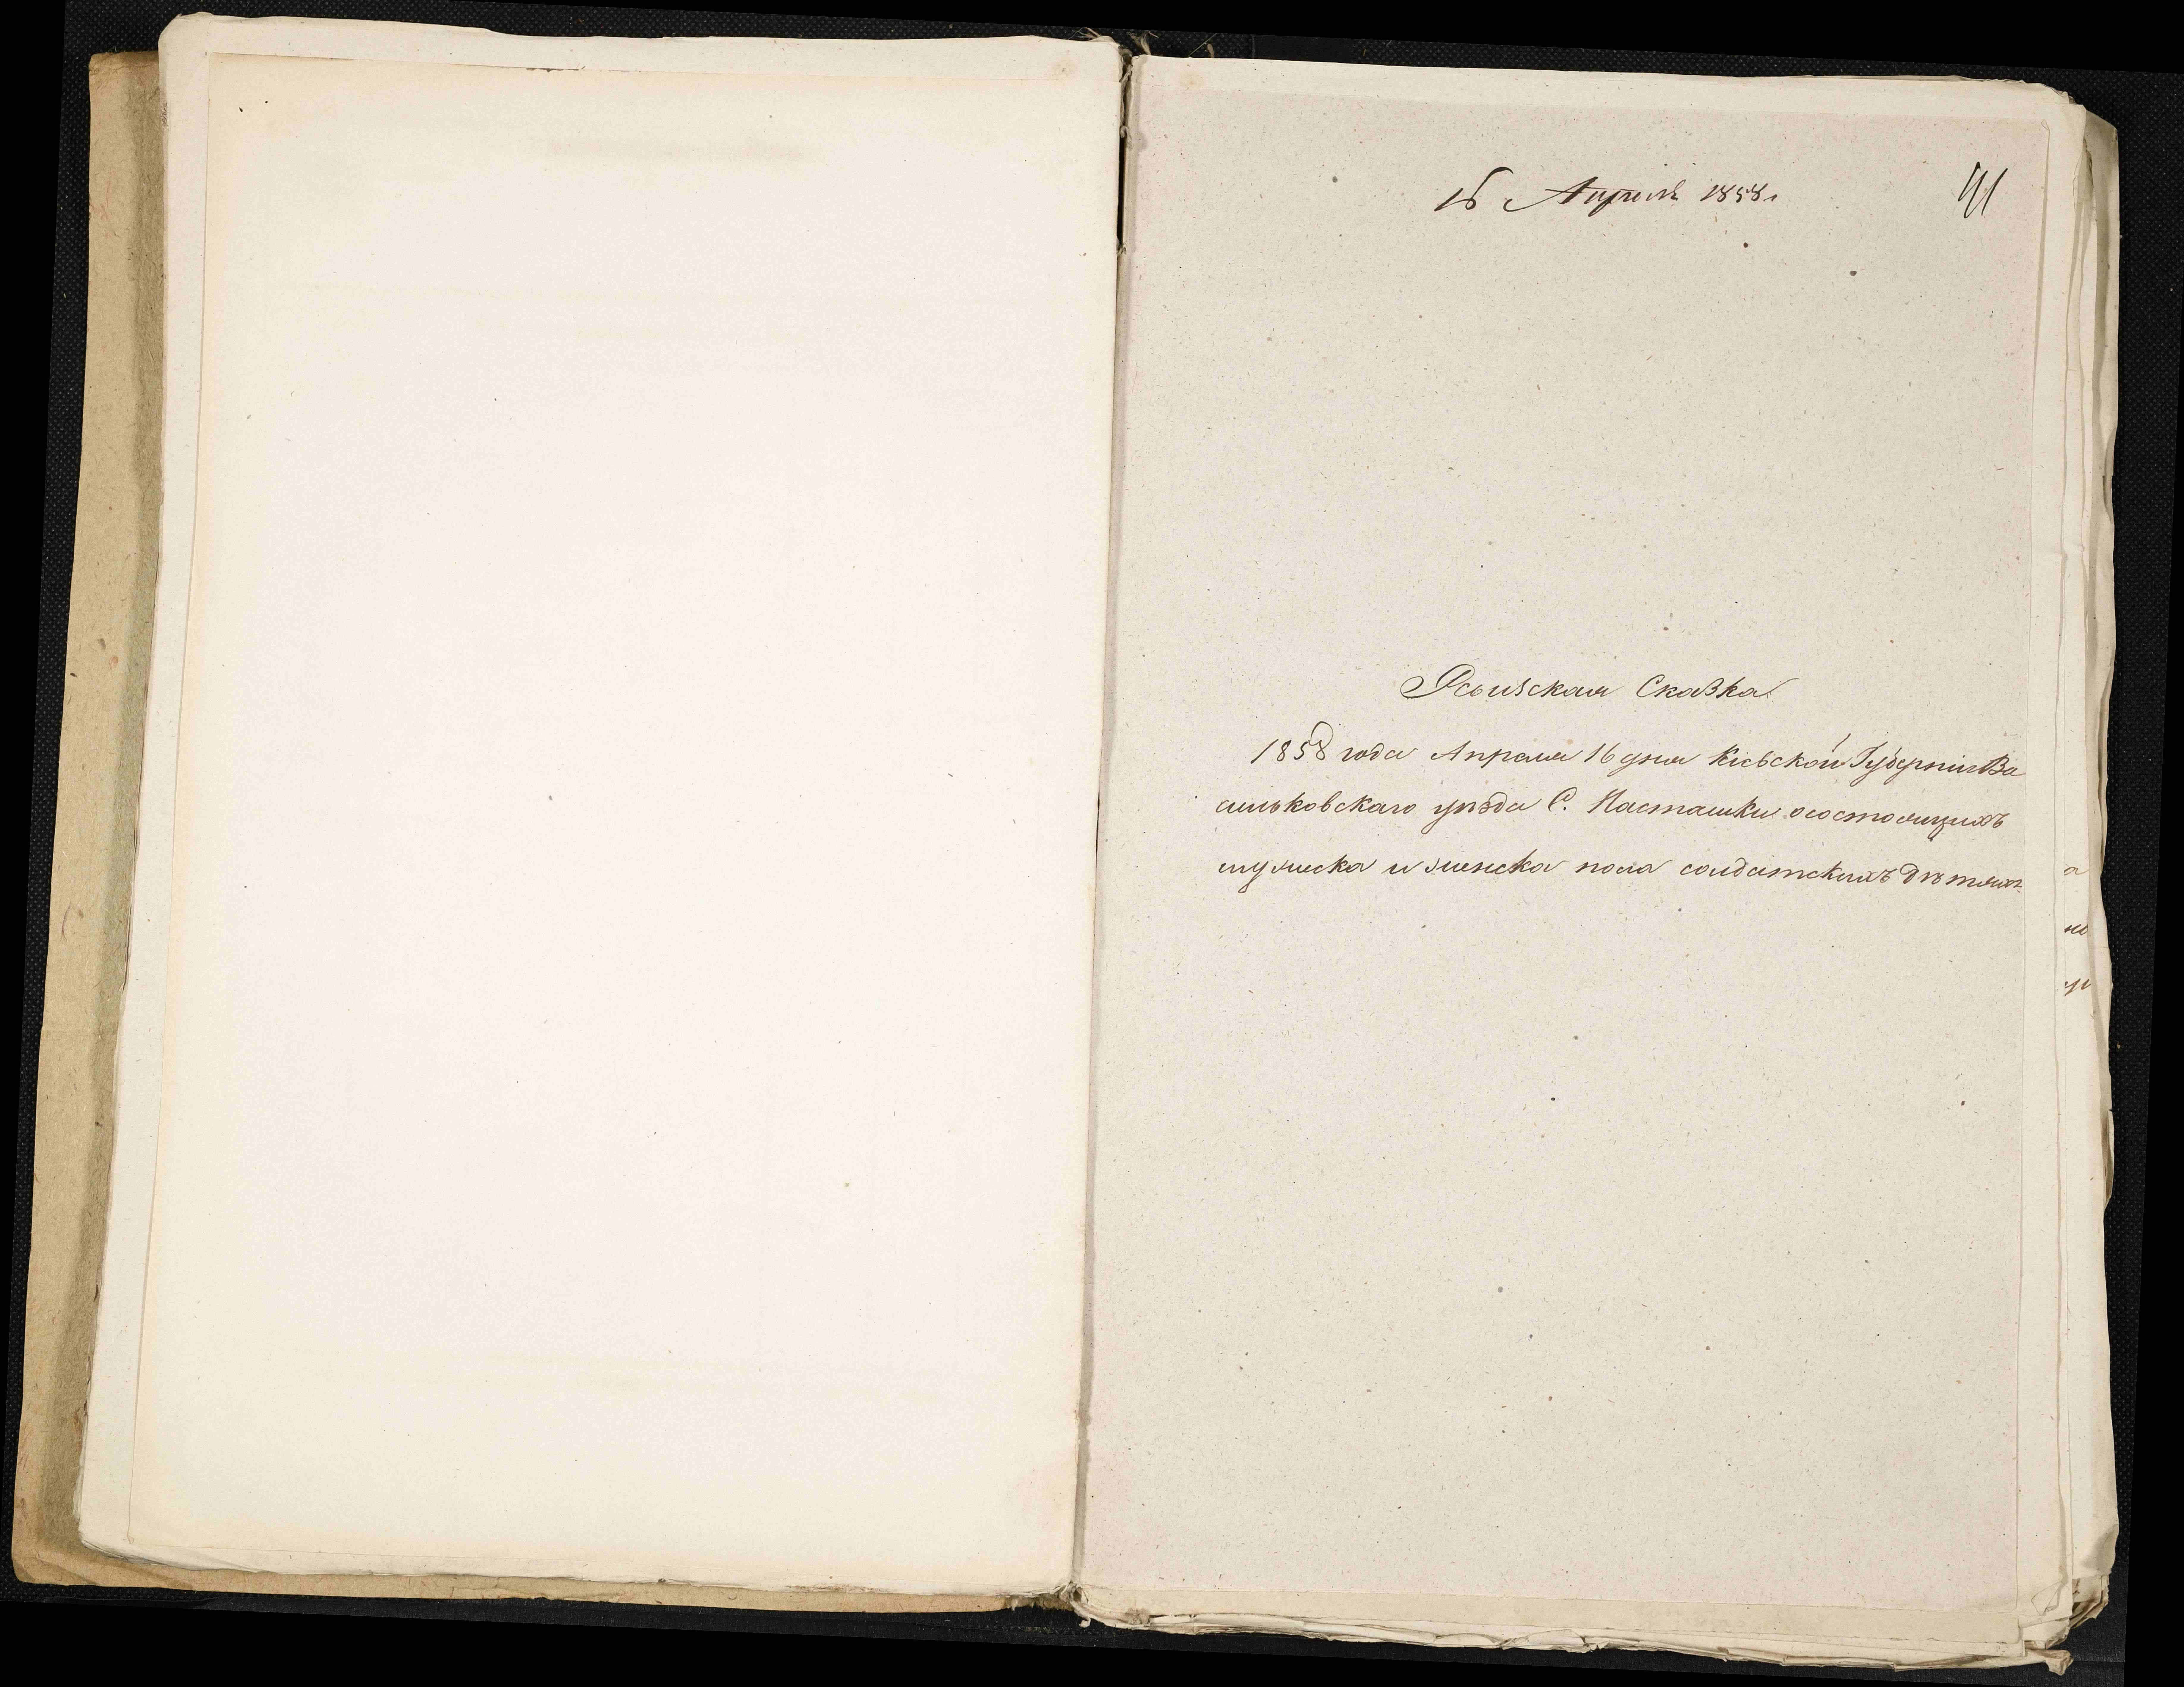 16 Апреля 1858 г
Ревизская Сказка
1858 года Апреля 16 дня Кіевской Губерніи Ва
сильковскаго уѣзда С. Насташки осостоящихъ
мужеска и женска пола солдатскихъ дѣтяхъ